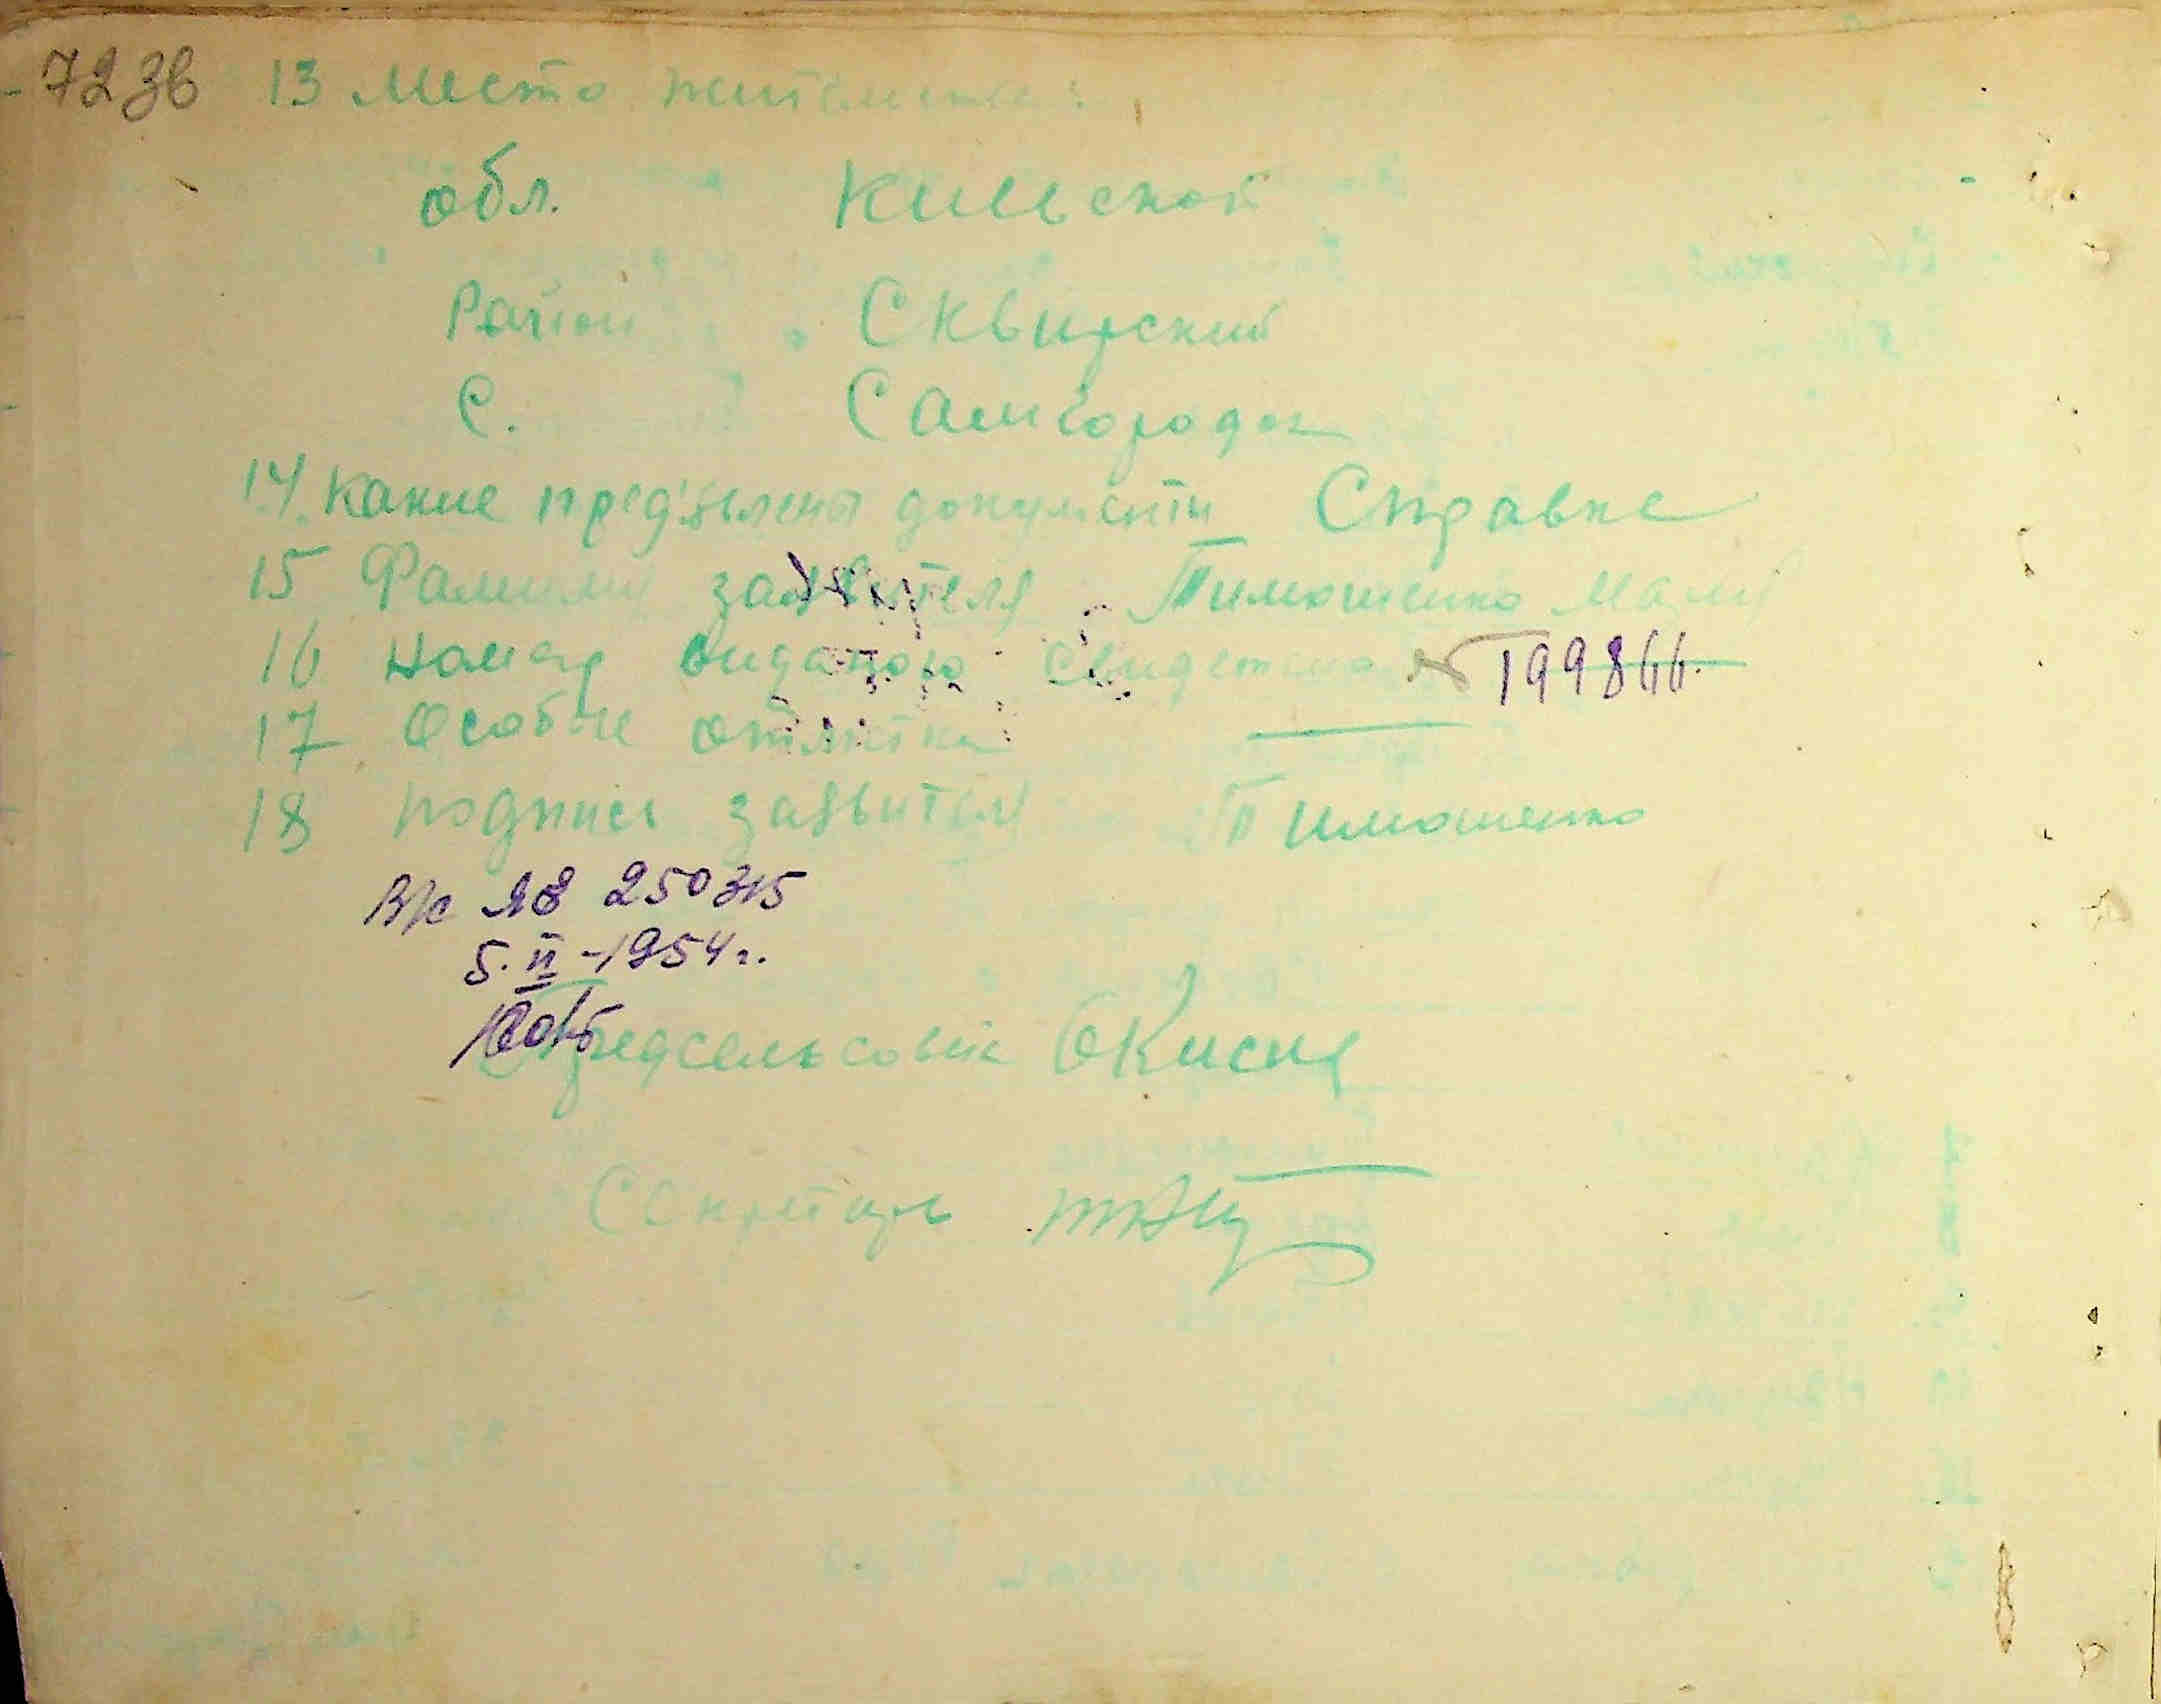 72 зв 13 Место жительства:
обл. Киевской
Район Сквирский
С. Самгородок
14. Какие пред'явлены документи Справка
15 Фамилия заявителя Тимошенко Мария
16 Номер виданого свидетельства № 199866.
17 Особые отметки —
18 подпись заявителя Тимошенко
В/с ЯЗ 250315
5. II - 1954 г.
Предсельсовета
Секретарь